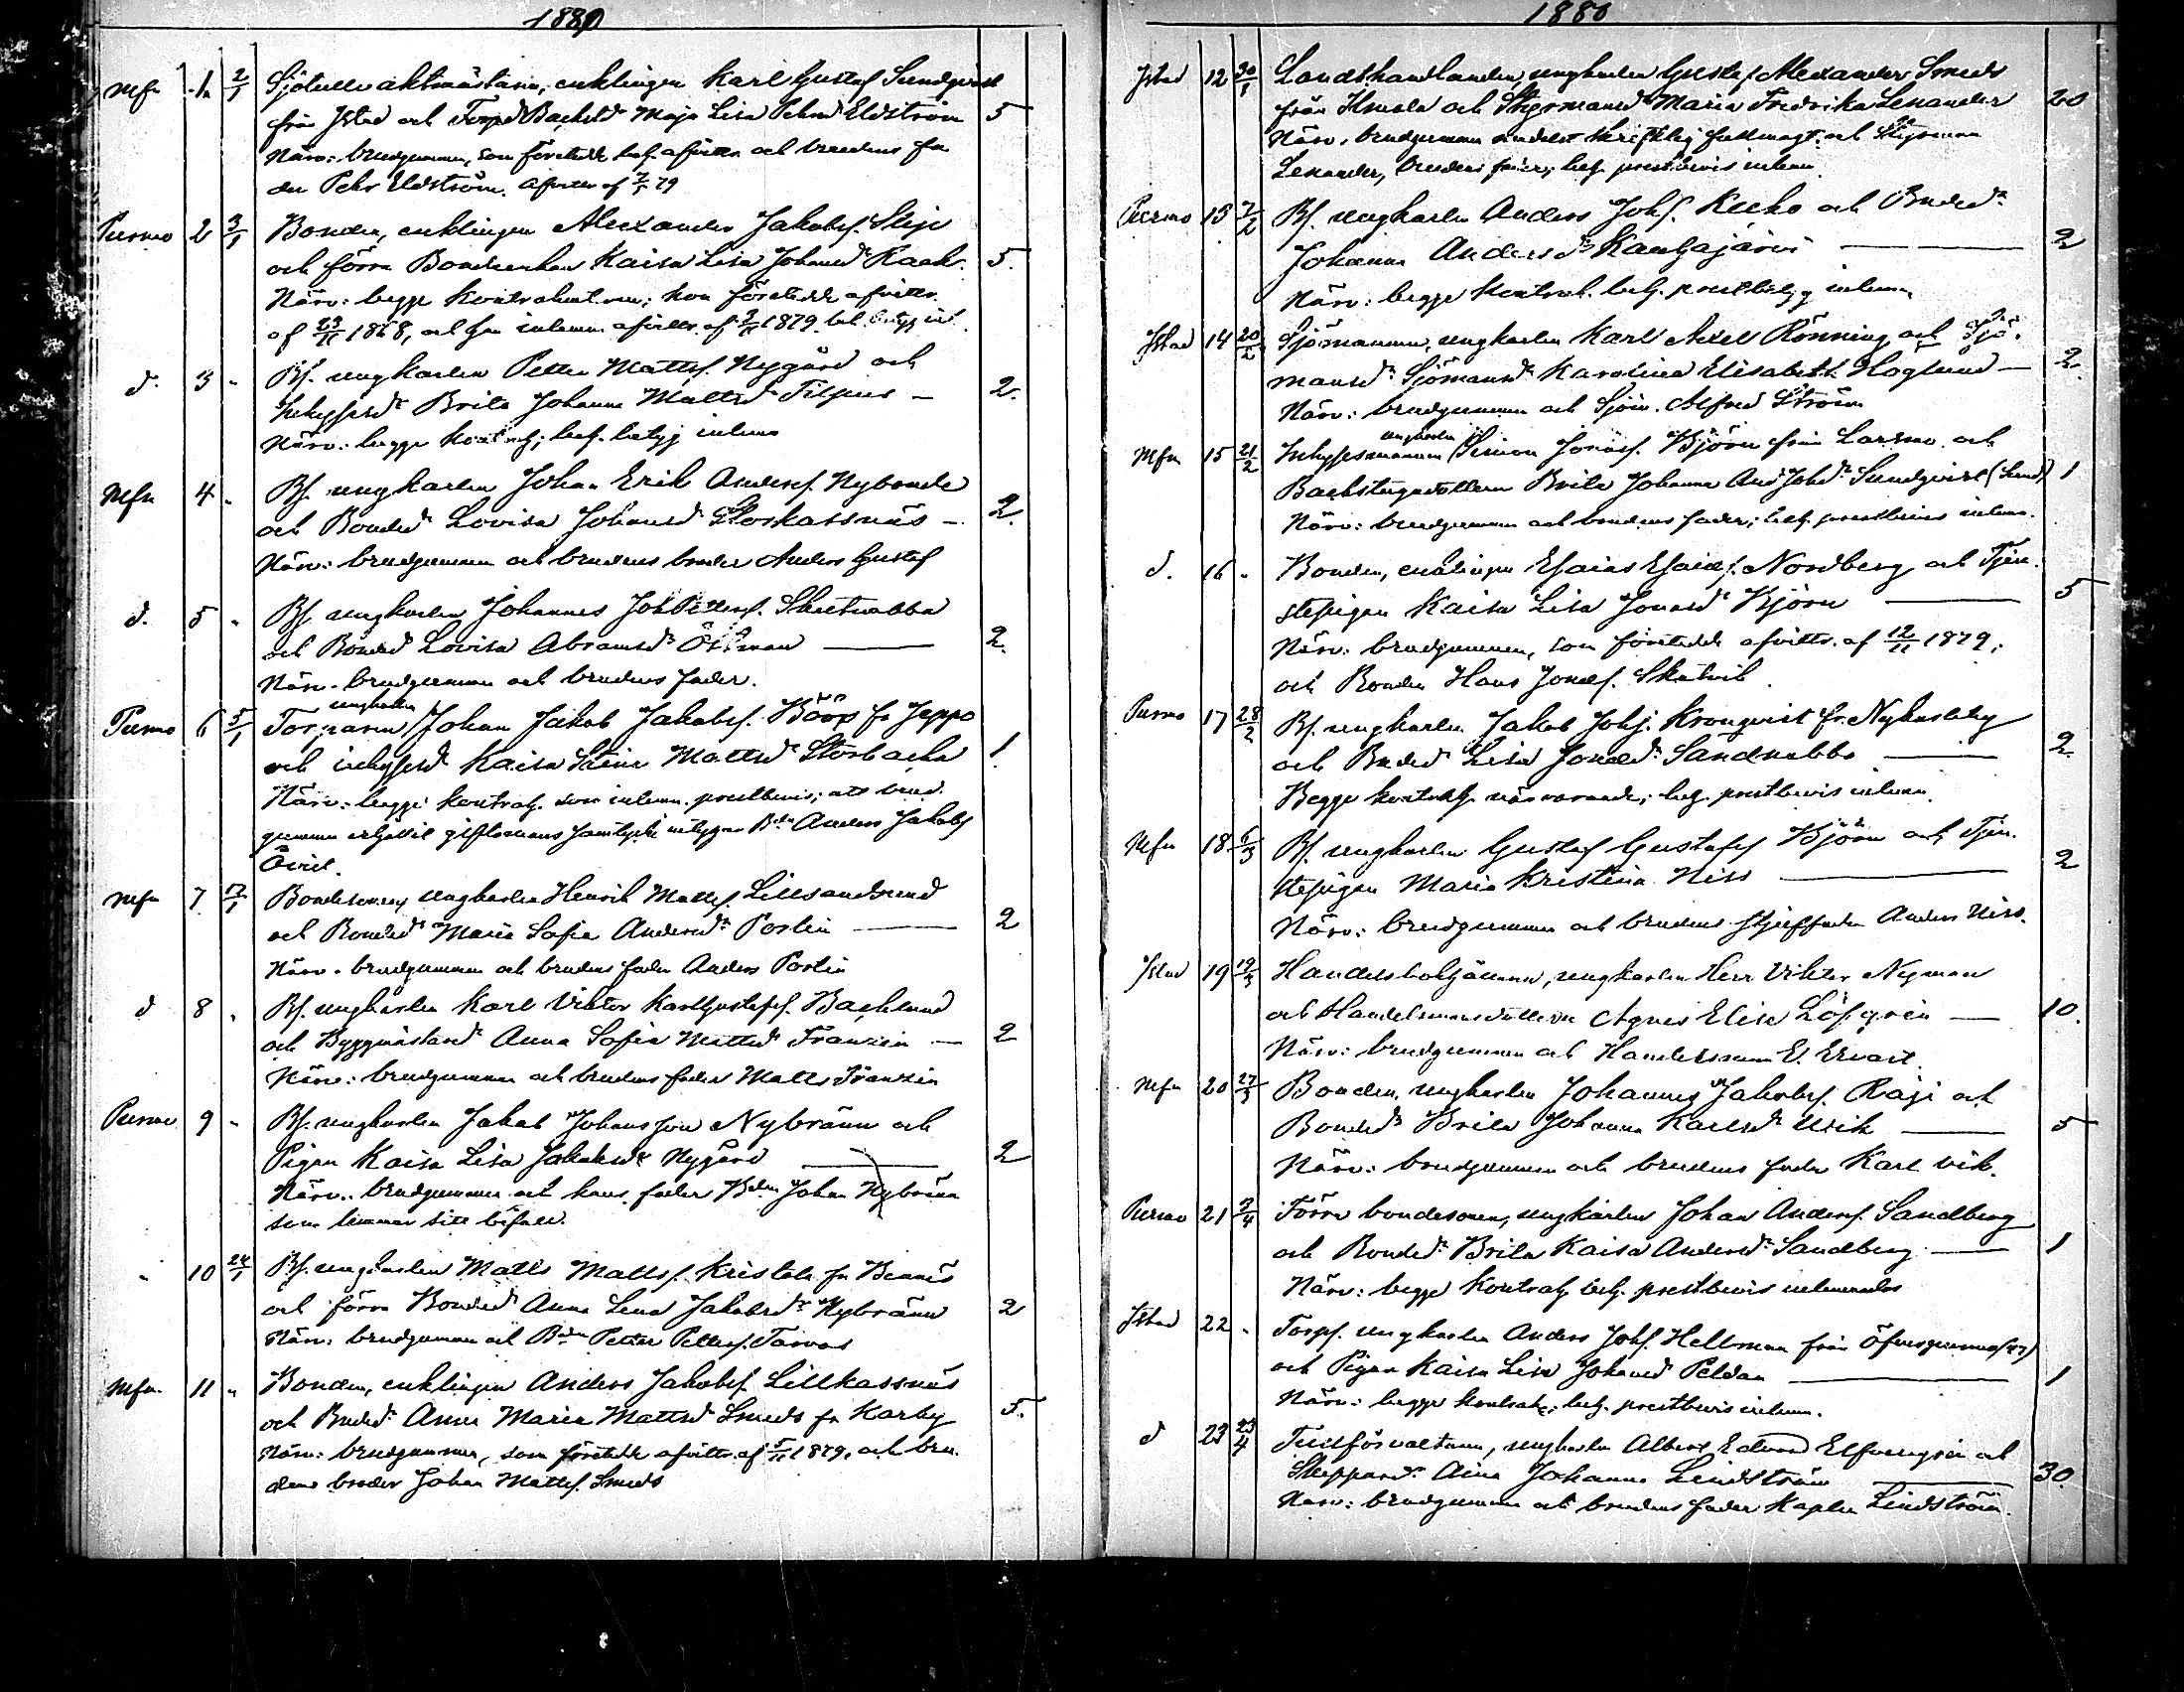 1880
Mfn 1. 2/1 Sjötullvaktmästaren, enklingen Karl Gustaf Sundqvist
från Jstad och Torpd Backsd Maja Lisa Pehrsd Eldström 5
Närv: brudgummen, som företedde afvittr. och brudens fa
der Pehr Eldström. Afvittr. af 79
Purmo 2 3/1 Bonden, enklingen Alexander Jakobsf. Slip
och förra Bondeenkan Kaisa Lisa Johansd Raak. 5.
Närv: begge kontrahenterna; hon företedde afvittr.
af 1868, och han inlemn. afvittr. af 1879.
d. 3 " Bf. ungkarlen Petter Mattsf. Nygård och
Inhysesdr Brita Johanna Mattsd Filpus – 2.
Närv: begge kontrah; beh. betyg inlemn
Mfn 4 " Bf. ungkarlen Johan Erik Andersf. Nybonde
och Bonded Lovisa Johansd Storkassnäs – 2.
Närv: brudgummen och brudens broder Anders Gustaf
d. 5 " Bf ungkarlen Johannes Joh Pettersf. Skutnabba
och Bonded Lovisa Abramsdr Östman — 2.
Närv. brudgummen och brudens fader.
Purmo 6 5/1 Torparen ungkarlen Johan Jakob Jakobsf. Böös fr Jeppo
och inhysesd Kaisa Stina Mattsd Storbacka 1.
Närv: begge kontrah. som inlemn. prestbevis; att brud
gummen erhållit giftomans samtycke intygar Bdn Anders Jakobsf
Övist.
Mfn 7 17/1 Bondesonen, ungkarlen Henrik Mattsf. Lillsandsund
och Bonded Maria Sofia Andersdr Portin — 2
Närv. brudgummen och brudens fader Anders Portin
d 8 " Bf. ungkarlen Karl Viktor Karlgustafsf. Backlund
och Byggmästard Anna Sofia Mattsd Franzén — 2
Närv: brudgummen och brudens fader Matts Franzén
Purmo 9 " Bf. ungkarlen Jakob Johansson Nybränn och
Pigan Kaisa Lisa Jakobsdr Nygård — 2
Närv: brudgummen och hans fader Bdn Johan Nybränn
som lemnar sitt bifall.
" 10 24/1 Bf. ungkarlen Matts Mattsf. Kristola fr Bennäs
och förra Bonded Anna Lena Jakobsdr Nybränn 2
Närv: brudgummen och Bdn Petter Pettersf. Tarvas
Mfn. 11 " Bonden, enklingen Anders Jakobsf. Lillkassnäs
och Bonded Anna Maria Mattsd Smeds fr Karby 5.
Närv: brudgummen, som företedde afvittr. af 1879, och bru
dens broder Johan Mattsf. Smeds
1880
Jstad 12 30/1 Landthandlanden, ungkarlen Gustaf Alexander Smeds
från Ilmola och Styrmansd Maria Fredrika Lenander 20
Närv: brudgummen medelst skriftlig fullmagt och Styrman
Lenander, brudens fader; beh. prestbevis inlemn
Purmo 13 7/2 Bf. ungkarlen Anders Johsf. Kecko och Bonded
Johanna Andersdr Kaukajärvi — 2
Närv: begge kontrah. beh. prestbetyg inlemn
Jstad 14 20/2 Sjömannen, ungkarlen Karl Axel Rönning och Sjö-
mansd Sjömansd Karolina Elisabeth Höglund — 2.
Närv: brudgummen och Sjöm. Alfred Ström
Mfn 15 21/2 Inhysesmannen ungkarlen Simon Jonasf. Björn från Larsmo och
Backstugudottern Brita Johanna And Johdr Sundqvist (Lund) 1
Närv: brudgummen och brudens fader; beh. prestbevis inlemn.
d. 16 " Bonden, enklingen Esaias Esaiasf. Nordberg och Tjen-
stepigan Kaisa Lisa Jonasdr Björn — 5
Närv: brudgummen, som företedde afvittr. af 12/11 1879;
och Bonden Hans Jonasf. Skätvik.
Purmo 17 28/2 Bf. ungkarlen Jakob Johsf. Kronqvist fr. Nykarleby
och Bonded Lisa Jonasdr Sandnabba — 2
Begge kontrah. närvarande; beh. prestbevis inlemn.
Mfn 18. 6/3 Bf. ungkarlen Gustaf Gustafsf Björn och Tjen-
stepigan Maria Kristina Niss — 2
Närv: brudgummen och brudens styffader Anders Niss.
Jstad 19 19/3 Handelsbokhållaren, ungkarlen Herr Viktor Nyman
och Handelsmansdottern Agnes Elise Löfgrén — 10.
Närv: brudgummen och Handelsman E. Ervast.
Mfn 20 27/3 Bonden, ungkarlen Johannes Jakobsf. Räjf och
Bonded Brita Johanna Karlsdr Wik — 5
Närv: brudgummen och brudens fader Karl Wik.
Purmo 21 3/4 Förra bondesonen, ungkarlen Johan Andersf. Sandberg
och Bonded Brita Kaisa Andersdr Sandberg. — 1
Närv: begge kontrah; beh. prestbevis inlemnades
Jstad 22 " Torpf. ungkarlen Anders Johsf. Hellman från Öfverpurmo
och Pigan Kaisa Lisa Johansd Peldan — 1
Närv: begge kontrah.; beh. prestbevis inlemn.
d 23 23/4 Tullförvaltaren, ungkarlen Albert Edvard Elfvengrén och
Skeppard. Aina Johanna Lindström — 30.
Närv: brudgummen och brudens fader Kapten Lindström.